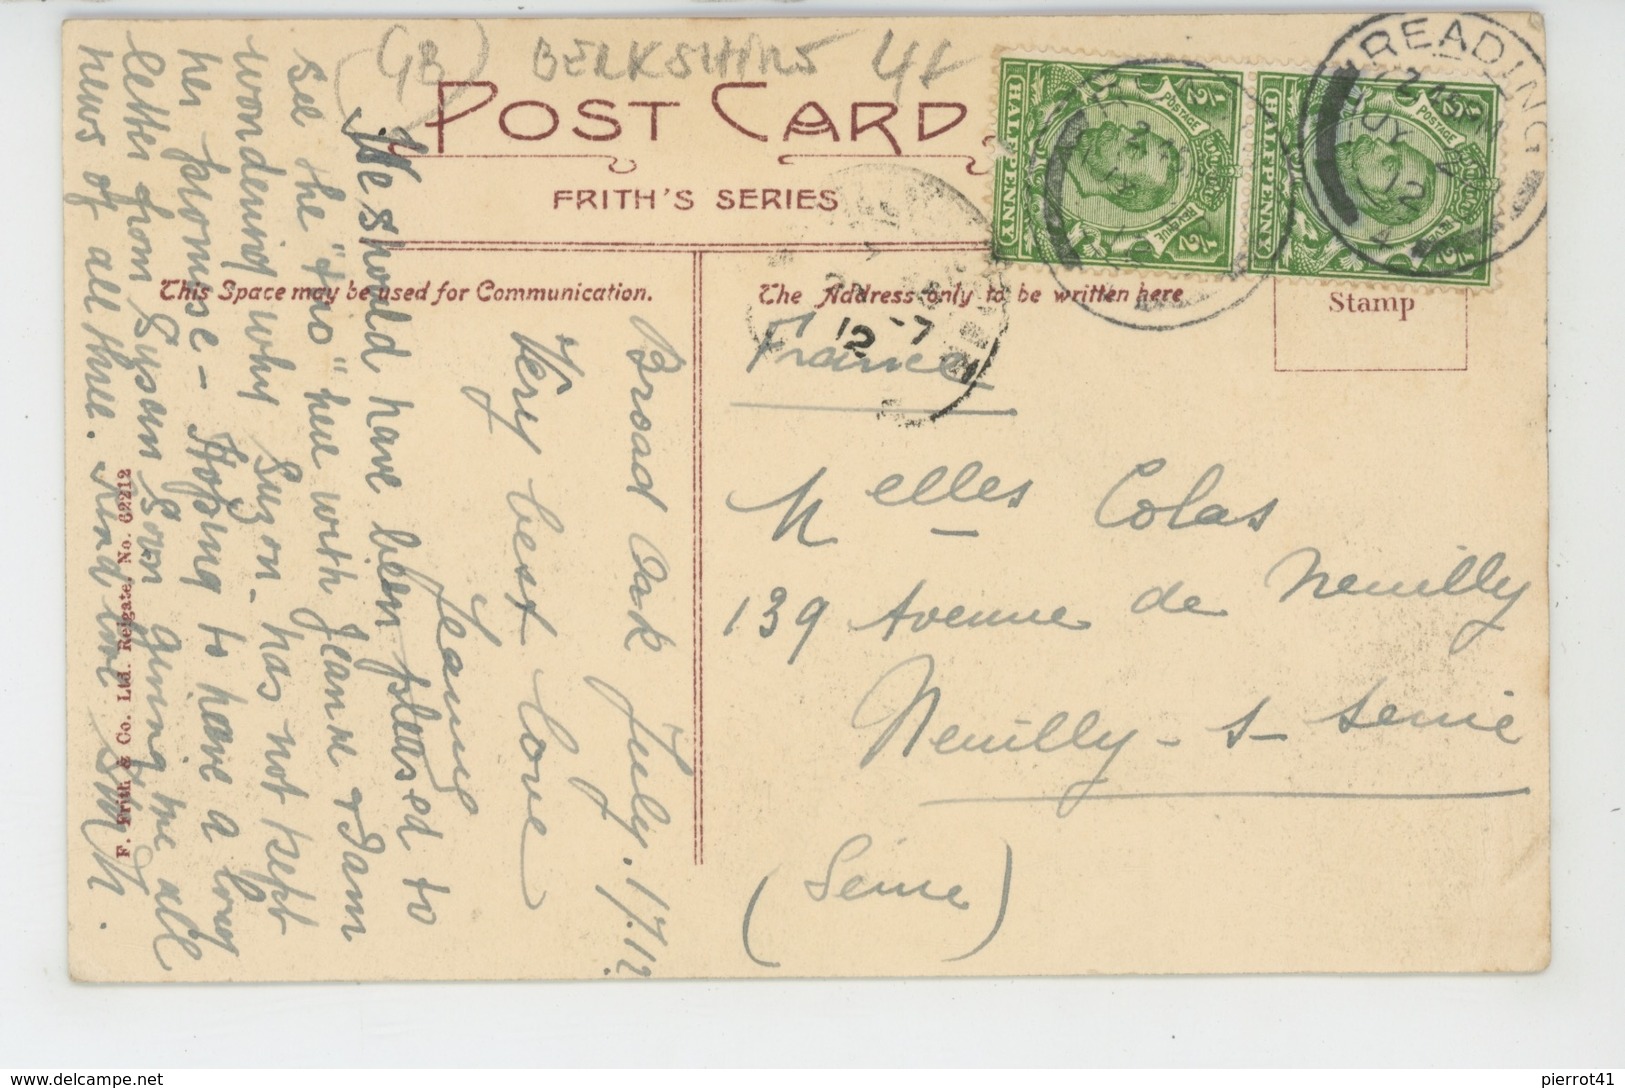 GB BERKSHIRE
POST CARD
FRITH'S SERIES
This Space may be used for Communication.
The Address only to be written here
Stamp
READING
POSTAGE
REVENUE
HALFPENNY
1/2
POSTAGE
HALFPENNY
1/2
12
12 -7
France
Melles Colas
139 Avenue de Neuilly
Neuilly - s - Seine
(Seine)
Broad Oak July. 17.12
Very best love
Jeanne
We should have been pleased to
see the "trio" here with Jeanne & I am
wondering why Suzon has not kept
her promise - Hoping to have a long
letter from Suzon giving me all
news of all three. Kind
F. Frith & Co. Ltd. Reigate, No. 62212
pierrot41
delcampe.net